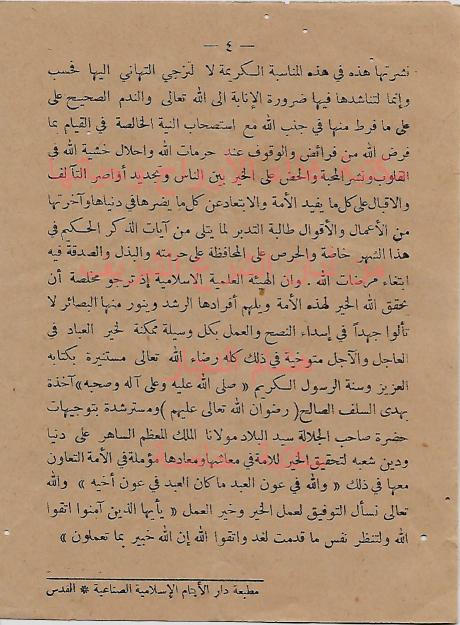 — ٤ —
نشرتها هذه في هذه المناسبة الكريمة لا لتزجي التهاني اليها فحسب
وإنما لتناشدها فيها ضرورة الإنابة الى الله تعالى والندم الصحيح على
على ما فرط منها في جنب الله مع استصحاب النية الخالصة في القيام بما
فرض الله من فرائض والوقوف عند حرمات الله واحلال خشية الله في
القلوب ونشر المحبة والحض على الخير بين الناس وتجديد أواصر التآلف
والاقبال على كل ما يفيد الأمة والابتعاد عن كل ما يضرها في دنياها وآخرتها
من الأعمال والأقوال طالبة التدبر لما يتلى من آيات الذكر الحكيم في
هذا الشهر خاصة والحرص على المحافظة على حرمته والبذل والصدقة فيه
ابتغاء مرضات الله . وان الهيئة العلمية الاسلامية إذ ترجو مخلصة أن
يحقق الله الخير لهذه الأمة ويلهم أفرادها الرشد وينور منها البصائر لا
تألوا جهداً في إسداء النصح والعمل بكل وسيلة ممكنة لخير العباد في
العاجل والآجل متوخية في ذلك كله رضاء الله تعالى مستنيرة بكتابه
العزيز وسنة الرسول الكريم « صلى الله عليه وعلى آله وصحبه » آخذة
بهدى السلف الصالح ( رضوان الله تعالى عليهم ) ومسترشدة بتوجيهات
حضرة صاحب الجلالة سيد البلاد مولانا الملك المعظم الساهر على دنيا
ودين شعبه لتحقيق الخير للامة في معاشها ومعادها مؤملة في الأمة التعاون
معها في ذلك « والله في عون العبد ما كان العبد في عون أخيه » والله
تعالى نسأل التوفيق لعمل الخير وخير العمل « يأيها الذين آمنوا اتقوا
الله ولتنظر نفس ما قدمت لغد واتقوا الله إن الله خبير بما تعملون »
مطبعة دار الأيتام الإسلامية الصناعية * القدس